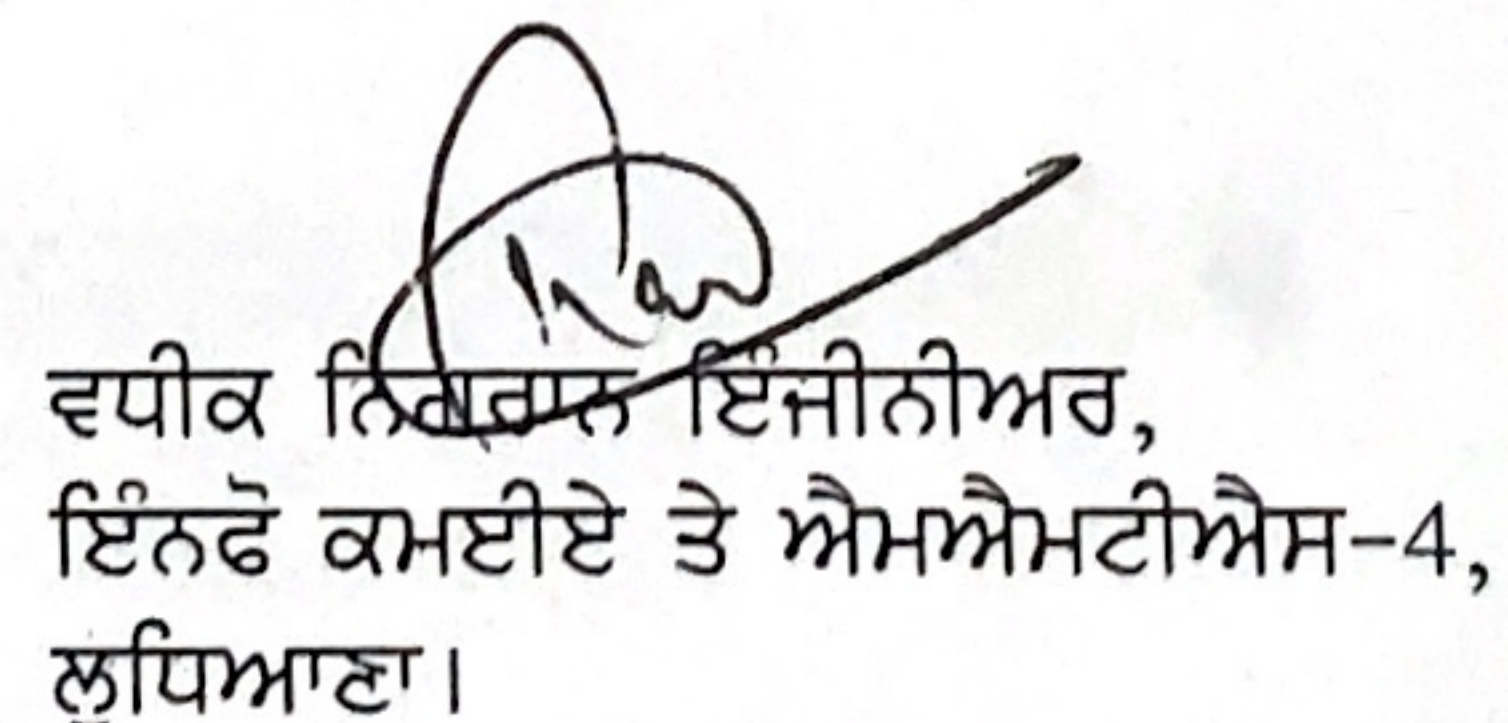 ਵਧੀਕ ਨਿਗਰਾਨ ਇੰਜੀਨੀਅਰ,
ਇੰਨਫੋ ਕਮਈਏ ਤੇ ਐਮਐਮਟੀਐਸ-4,
ਲੁਧਿਆਣਾ।